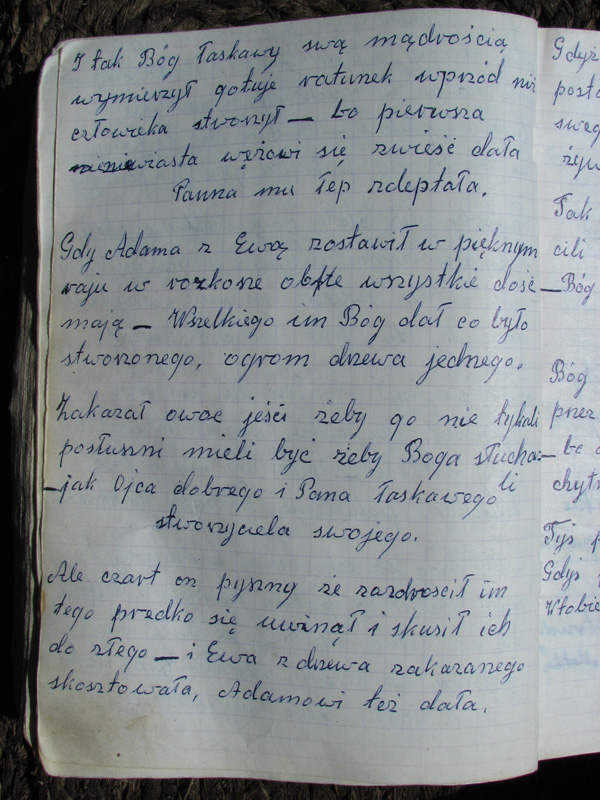 I tak Bóg łaskawy swą mądrością
wymierzył gotuje ratunek wprzód niż
człowieka stworzył – bo pierwsza
niewiasta wężowi się zwieść dała
Panna mu łep zdeptała.
Gdy Adama z Ewą zostawił w pięknym
raju w rozkosze obfte wszystkie dość
mają – Wszelkiego im Bóg dał co było
stworzonego, ogrom drzewa jednego.
Zakazał owoc jeści żeby go nie tykali
posłuszni mieli być żeby Boga słucha-
li
– jak Ojca dobrego i Pana łaskawego
stworzyciela swojego.
Ale czart on pyszny że zazdrościł im
tego prędko się uwinął i skusił ich
do złego – i Ewa z drzewa zakazanego
skosztowała, Adamowi też dała.
Gdyż
posło
swego
żyw
Tak
cili
– Bóg
Bóg
przez
– bo
chytr
Tyś
Gdyś
Wtobie